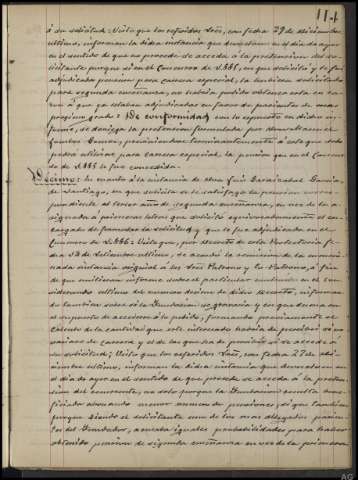 114
á su solicitud: Visto que los referidos Sres, con fecha 27 de diciembre
último, informan la dicha instancia que devuelven en el día de ayer
en el sentido de que no procede se acceda á la pretensión del so-
licitante porque si en el Concurso de 1.885, en que solicitó y le fué
adjudicada pensión para carrera especial, la hubiera solicitado
para segunda enseñanza, no habría podido obtenerla en ra-
zón á que ya estaban adjudicadas en favor de parientes de más
próximo grado: De conformidad con lo expuesto en dicho in-
forme, se deniega la pretensión formulada por
Gomez, previniéndose terminantemente á éste que solo
podrá utilizar para carrera especial, la pensión que en el Concur-
so de 1.885 le fué concedida.
Décimo: En cuanto á la instancia de don Luis García,
de Santiago, en que solicita se le satisfaga la pensión corres-
pondiente al tercer año de segunda enseñanza, en vez de la a-
signada á primeras letras que solicitó equivocadamente el en-
cargado de formular la solicitud y que le fué adjudicada en el
Concurso de 1.886: Visto que, por decreto de esta Protectoría fe-
cha 30 de Setiembre último, se acordó la remisión de la mencio-
nada instancia original á los Sres Patrono y Co-Patrono, á fin
de que emitieran informe sobre el particular
de dicho decreto, informan-
do también sobre si la Fundación se gravaría y en que
supuesto de accederse á lo pedido, formando previamente el
cálculo de la cantidad que este interesado habría de percibir si no
variase de carrera y el de las que ha de percibir si se accede á
su solicitud: Visto que los referidos Sres, con fecha 27 de di-
ciembre último, informan la dicha instancia que devuelven en
el día de ayer en el sentido de que procede se acceda á la preten-
sión del recurrente, no solo porque la Fundación resulta bene-
ficiada abonando menor número de pensiones, sí que también
porque siendo el solicitante uno de los más allegados parien-
tes del Fundador, contaba iguales probabilidades para haber
obtenido pensión de segunda enseñanza en vez de la primera
AG